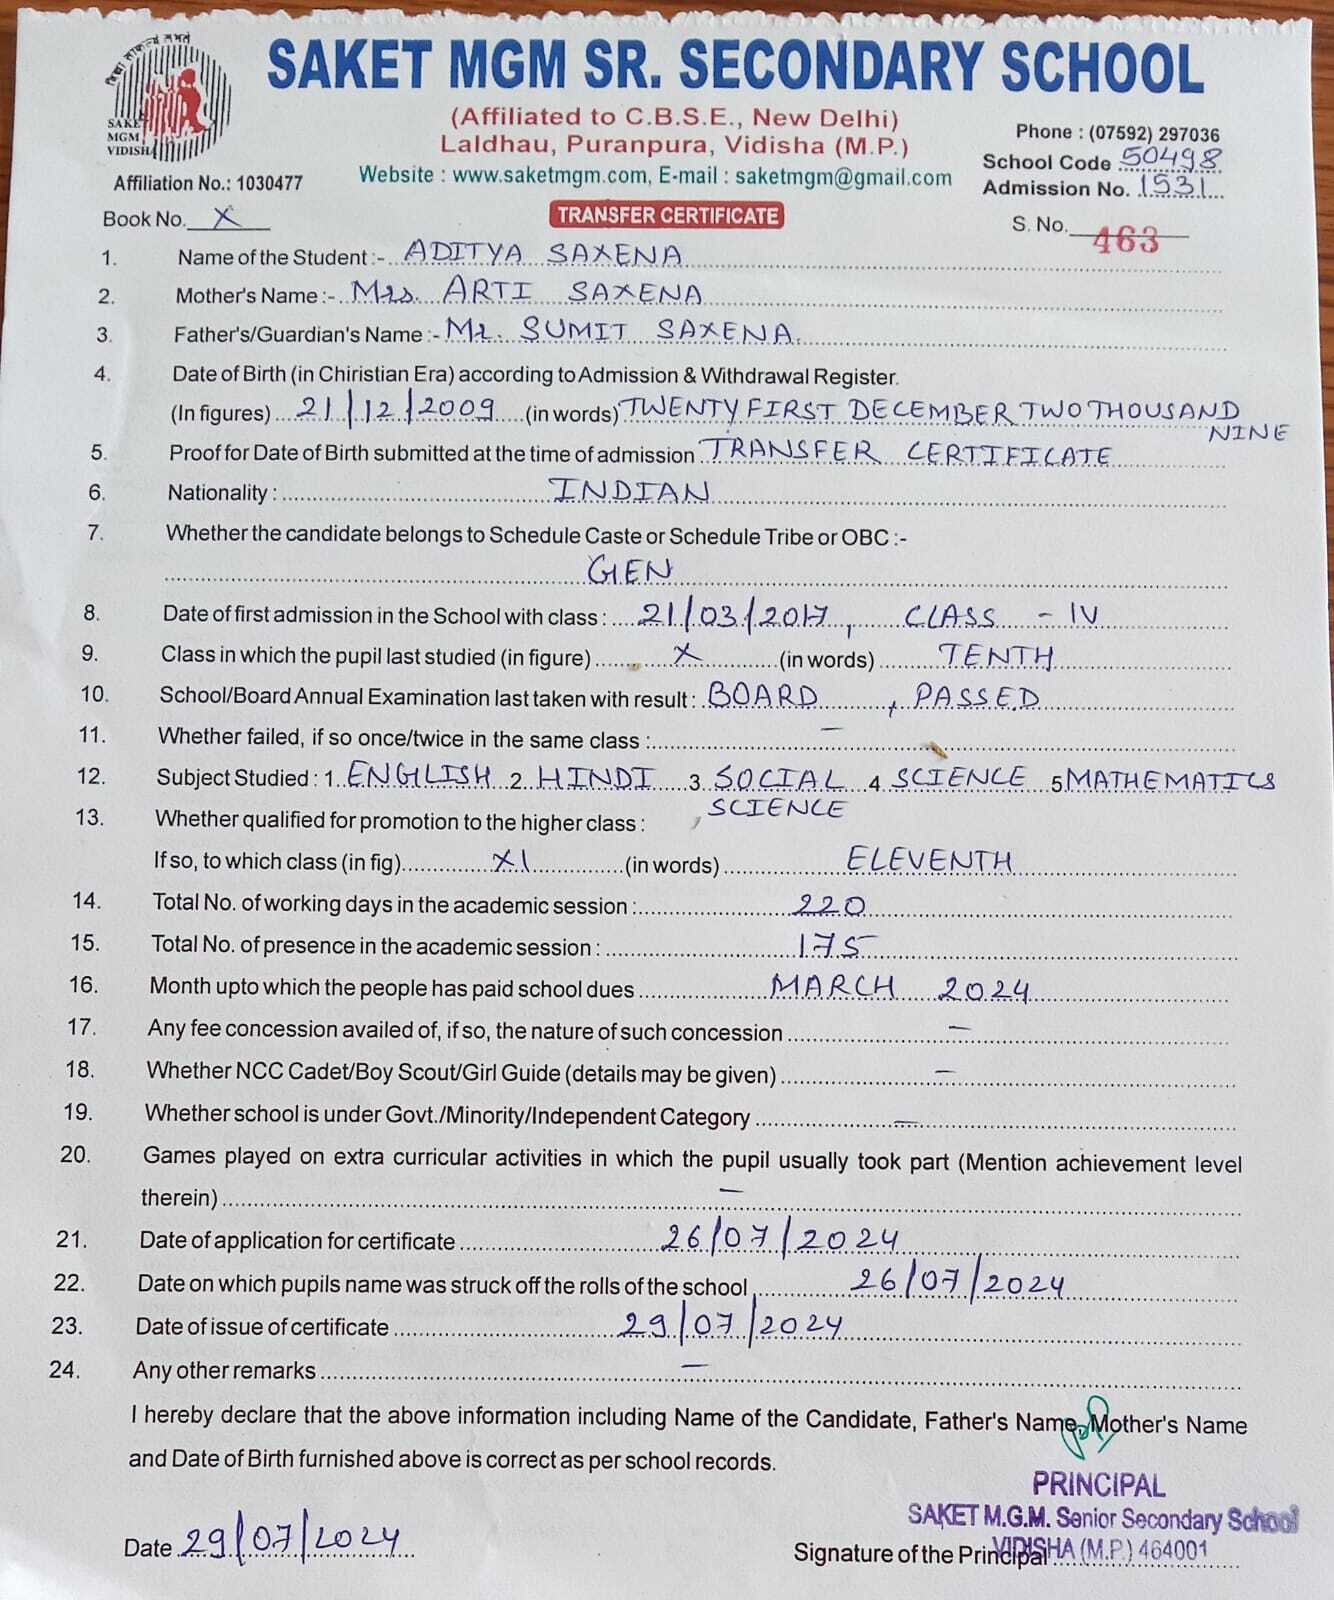 विद्या ददाति
SAKET
MGM
VIDISHA
SAKET MGM SR. SECONDARY SCHOOL
(Affiliated to C.B.S.E., New Delhi)
Laldhau, Puranpura, Vidisha (M.P.)
Phone : (07592) 297036
Website : www.saketmgm.com, E-mail : saketmgm@gmail.com
School Code 50498
Affiliation No.: 1030477
Admission No. 1531
Book No. X
TRANSFER CERTIFICATE
S. No. 463
1. Name of the Student :- ADITYA SAXENA
2. Mother's Name :- Mrs. ARTI SAXENA
3. Father's/Guardian's Name :- Mr. SUMIT SAXENA.
4. Date of Birth (in Chiristian Era) according to Admission & Withdrawal Register.
(In figures) 21/12/2009 (in words) TWENTY FIRST DECEMBER TWO THOUSAND
NINE
5. Proof for Date of Birth submitted at the time of admission TRANSFER CERTIFICATE
6. Nationality : INDIAN
7. Whether the candidate belongs to Schedule Caste or Schedule Tribe or OBC :-
GEN
8. Date of first admission in the School with class : 21/03/2017, CLASS - IV
9. Class in which the pupil last studied (in figure) X (in words) TENTH
10. School/Board Annual Examination last taken with result : BOARD , PASSED
11. Whether failed, if so once/twice in the same class : —
12. Subject Studied : 1. ENGLISH 2. HINDI 3 SOCIAL 4 SCIENCE 5 MATHEMATICS
SCIENCE
13. Whether qualified for promotion to the higher class :
If so, to which class (in fig) XI (in words) ELEVENTH
14. Total No. of working days in the academic session : 220
15. Total No. of presence in the academic session : 175
16. Month upto which the people has paid school dues MARCH 2024
17. Any fee concession availed of, if so, the nature of such concession —
18. Whether NCC Cadet/Boy Scout/Girl Guide (details may be given) —
19. Whether school is under Govt./Minority/Independent Category —
20. Games played on extra curricular activities in which the pupil usually took part (Mention achievement level
therein) —
21. Date of application for certificate 26/07/2024
22. Date on which pupils name was struck off the rolls of the school 26/07/2024
23. Date of issue of certificate 29/07/2024
24. Any other remarks —
I hereby declare that the above information including Name of the Candidate, Father's Name, Mother's Name
and Date of Birth furnished above is correct as per school records.
PRINCIPAL
SAKET M.G.M. Senior Secondary School
VIDISHA (M.P.) 464001
Date 29/07/2024
Signature of the Principal